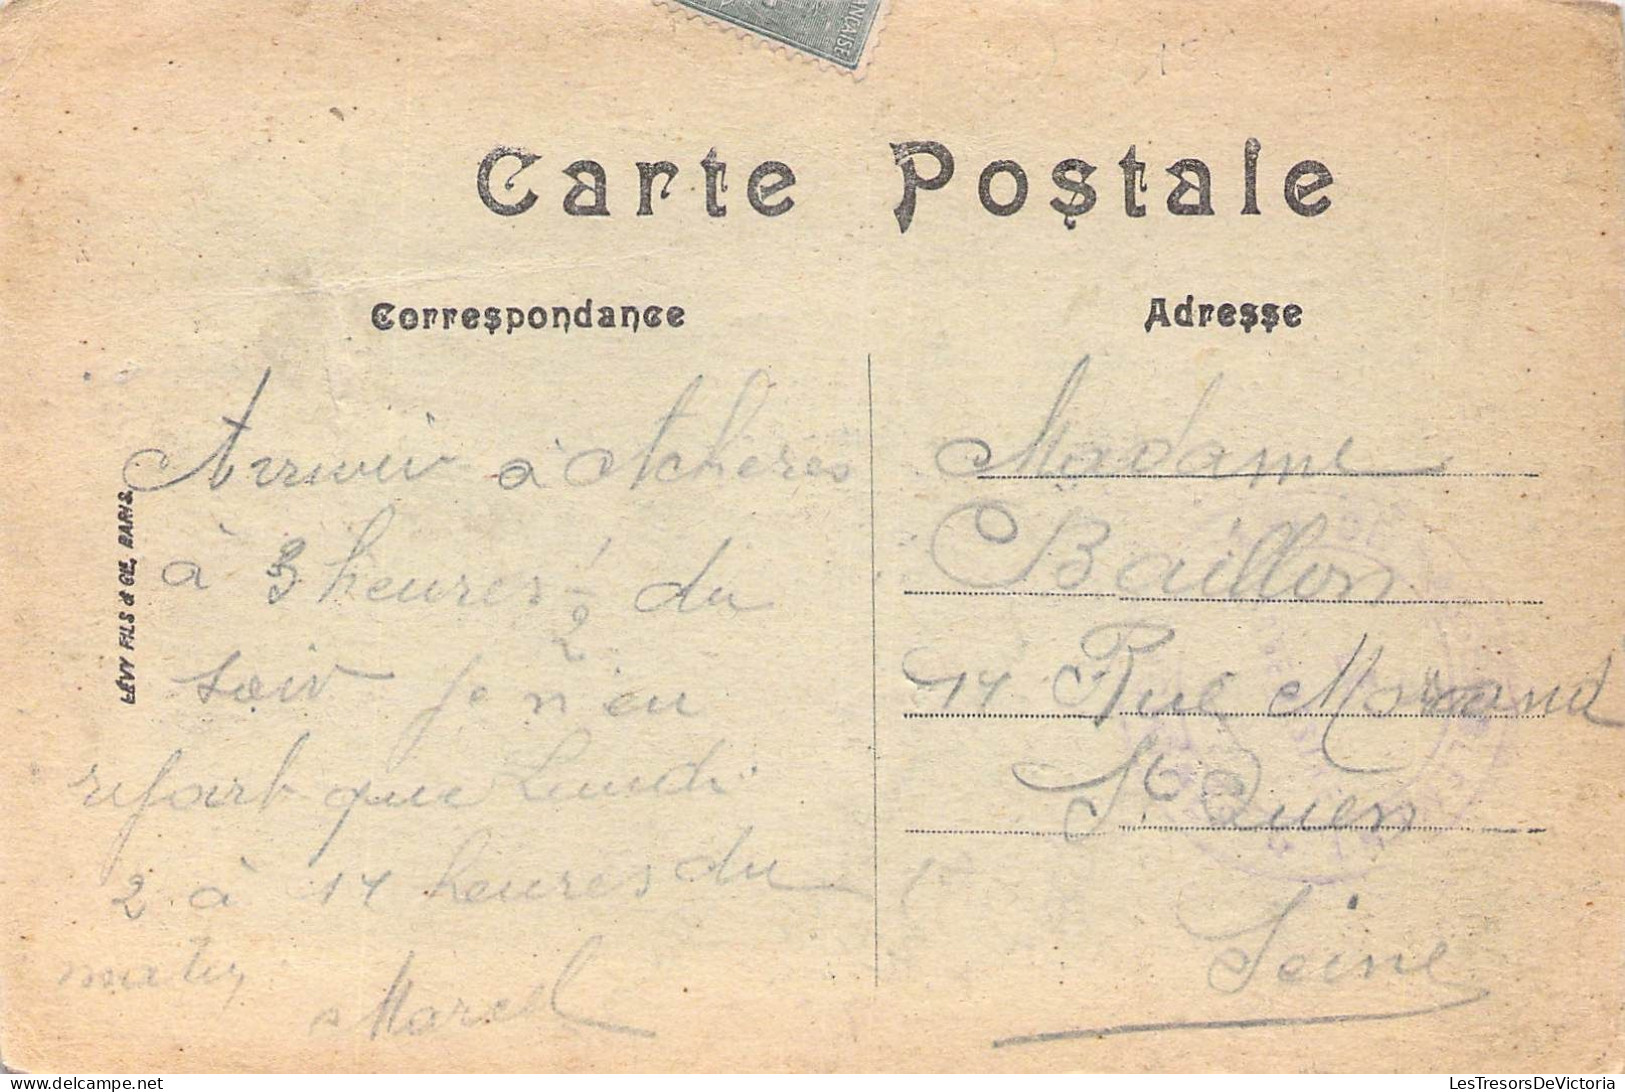 ANÇAISE
Carte Postale
Correspondance
Adresse
LÉVY FILS & CIE, PARIS.
Arriver à Achères
à 3 heures 1/2 du
soir Je n'en
repart que Lundi
2 à 14 heures du
matin
Marcel
Madame
Baillon
14 Rue Morand
St Ouen
Seine
delcampe.net
LesTresorsDeVictoria